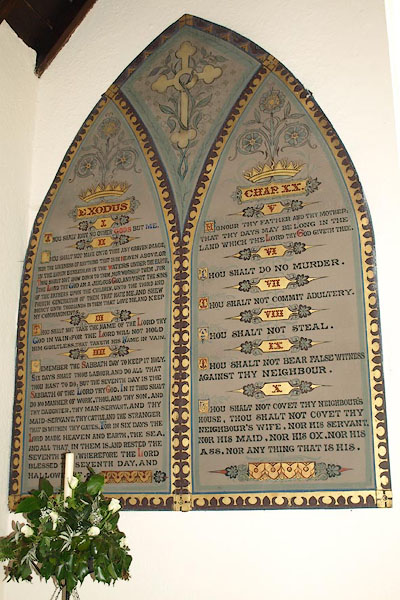 EXODUS
I
THOU SHALT HAVE NO OTHER GODS BUT ME.
II
THOU SHALT NOT MAKE TO THYSELF ANY GRAVEN IMAGE,
NOR THE LIKENESS OF ANYTHING THAT IS IN HEAVEN ABOVE, OR
IN THE EARTH BENEATH, OR IN THE WATERS UNDER THE EARTH.
THOU SHALT NOT BOW DOWN TO THEM, NOR WORSHIP THEM, FOR
I THE LORD THY GOD AM A JEALOUS GOD, AND VISIT THE SINS
OF THE FATHERS UPON THE CHILDREN UNTO THE THIRD AND
FOURTH GENERATION OF THEM THAT HATE ME, AND SHEW
MERCY UNTO THOUSANDS IN THEM THAT LOVE ME, AND KEEP
MY COMMANDMENTS
III
THOU SHALT NOT TAKE THE NAME OF THE LORD THY
GOD IN VAIN: FOR THE LORD WILL NOT HOLD
HIM GUILTLESS THAT TAKETH HIS NAME IN VAIN.
IIII
REMEMBER THE SABBATH DAY TO KEEP IT HOLY.
SIX DAYS SHALT THOU LABOUR, AND DO ALL THAT
THOU HAST TO DO, BUT THE SEVENTH DAY IS THE
SABBATH OF THE LORD THY GOD. IN IT THOU SHALT
DO NO MANNER OF WORK, THOU, AND THY SON, AND
THY DAUGHTER, THY MAN-SERVANT, AND THY
MAID-SERVANT, THY CATTLE, AND THE STRANGER
THAT IS WITHIN THY GATES. FOR IN SIX DAYS THE
LORD MADE HEAVEN AND EARTH, THE SEA,
AND ALL THAT IN THEM IS, AND RESTED THE
SEVENTH DAY: WHEREFORE THE LORD
BLESSED THE SEVENTH DAY, AND
HALLOWED IT
CHAP. XX.
V
HONOUR THY FATHER AND THY MOTHER;
THAT THY DAYS MAY BE LONG IN THE
LAND WHICH THE LORD THY GOD GIVETH THEE.
VI
THOU SHALT DO NO MURDER.
VII
THOU SHALT NOT COMMIT ADULTERY.
VIII
THOU SHALT NOT STEAL.
IX
THOU SHALT NOT BEAR FALSE WITNESS
AGAINST THY NEIGHBOUR.
X
THOU SHALT NOT COVET THY NEIGHBOUR'S
HOUSE, THOU SHALT NOT COVET THY
NEIGHBOUR'S WIFE, NOR HIS SERVANT,
NOR HIS MAID, NOR HIS OX, NOR HIS
ASS, NOR ANY THING THAT IS HIS.